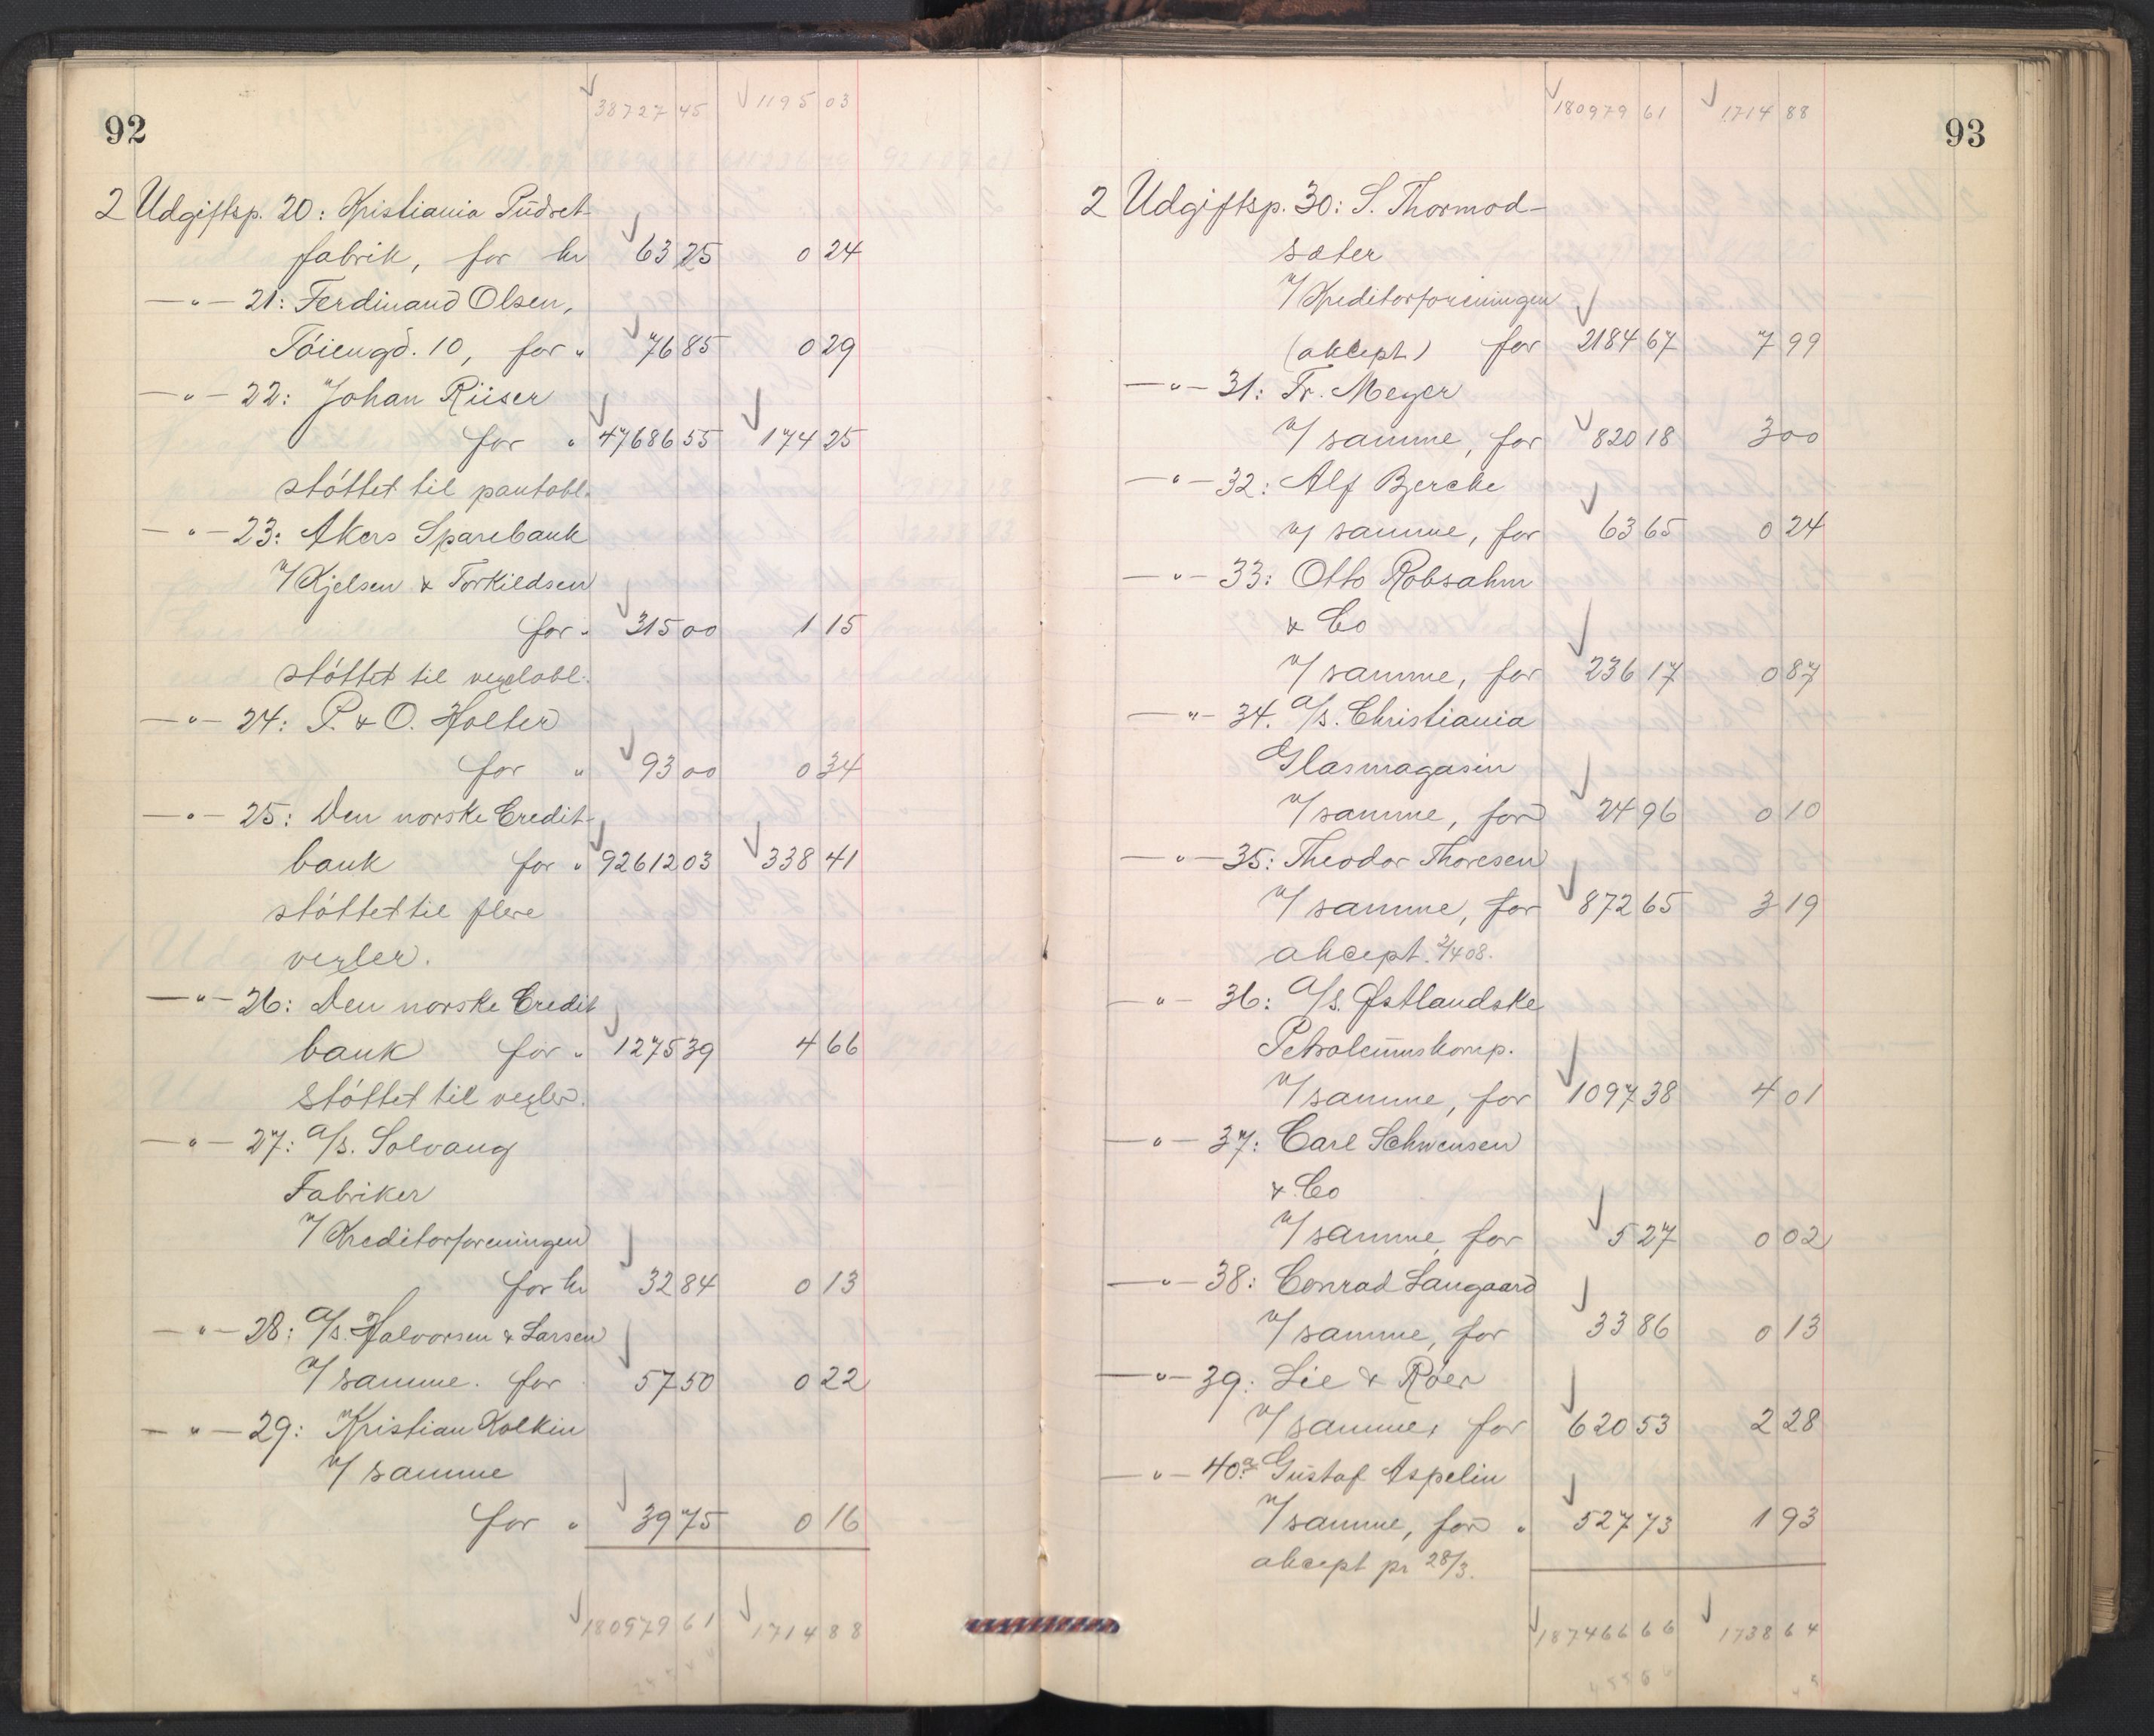 92
38727 45 1195 03
2 Udgiftsp. 20: Kristiania Pudret-
fabrik, for kr 63 25 0 24
—"— 21: Ferdinand Olsen,
Tóiengd. 10, for " 76 85 0 29
—"— 22: Johan Riiser
for " 47686 55 174 25
stóttet til pantobl.
—"— 23: Akers Sparebank
v/ Kjelsen & Torkildsen
for " 315 00 1 15
stóttet til vexelobl.
—"— 24: P. & O. Holter
for " 93 00 0 34
—"— 25: Den norske Credit-
bank for " 92612 03 338 41
stóttet til flere
vexler.
—"— 26: Den norske Credit
bank for " 1275 39 4 66
stóttet til vexler.
—"— 27: A/s. Solvang
Fabriker
v/ Kreditorforeningen
for kr 32 84 0 13
—"— 28: A/s. Halvorsen & Larsen
v/ samme. for 57 50 0 22
—"— 29: Kristian Kolkin
v/ samme
for " 39 75 0 16
180979 61 1714 88
93
180979 61 1714 88
2 Udgiftsp. 30: S. Thormod-
sæter
v/ Kreditorforeningen
(akcept) for 2184 67 7 99
—"— 31: Fr. Meyer
v/ samme, for 820 18 3 00
—"— 32: Alf Bjercke
v/ samme, for 63 65 0 24
—"— 33: Otto Robsahm
& Co
v/ samme, for 236 17 0 87
—"— 34. A/s. Christiania
Glasmagasin
v/ samme, for 24 96 0 10
—"— 35: Theodor Thoresen
v/ samme, for 872 65 3 19
akcept. 2/4 08.
—"— 36: A/s. Østlandske
Petroleumskomp.
v/ samme, for 1097 38 4 01
—"— 37: Carl Schwensen
& Co
v/ samme, for 5 27 0 02
—"— 38: Conrad Langaard
v/ samme, for 33 86 0 13
—"— 39: Lie & Róer
v/ samme, for 620 53 2 28
—"— 40a: Gustaf Aspelin
v/ samme, for " 527 73 1 93
akcept pr 28/3.
187466 66 1738 64